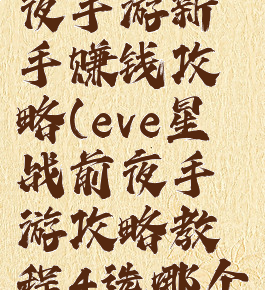 夜手游新
手赚钱攻
略(eve星
战前夜手
游攻略教
程4选哪个